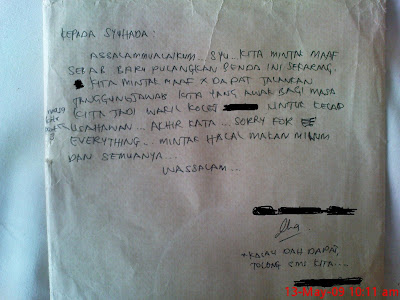 KEPADA SYUHADA :
ASSALAMMUALAIKUM... SYU.. KITA MINTAK MAAF
SEBAB BARU PULANGKAN BENDA INI SEKARANG.
KITA MINTAK MAAF X DAPAT TALANKAN
TANGGUNGJAWAB KITA YANG AWAK BAGI MASA
KITA JADI WAKIL KOLEJ UNTUK KELAB
USAHAWAN... AKHIR KATA... SORRY FOR
EVERYTHING... MINTAK HALAL MAKAN MINUM
DAN SEMUANYA...
WASSALAM...
* KALAU DAH DAPAT,
TOLONG SMS KITA...
10:11 am